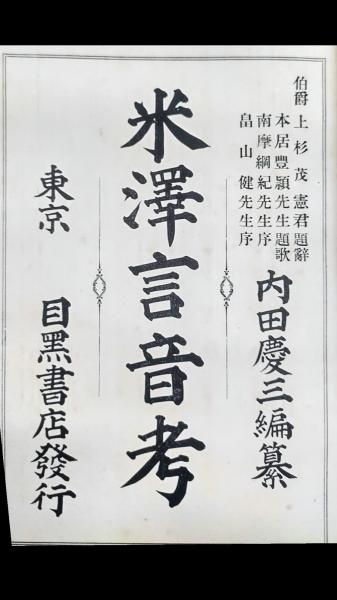 伯爵 上杉茂憲君題辭
本居豐潁先生題歌
南摩綱紀先生序
畠山健先生序
内田慶三編纂
米澤言音考
東京 目黑書店發行